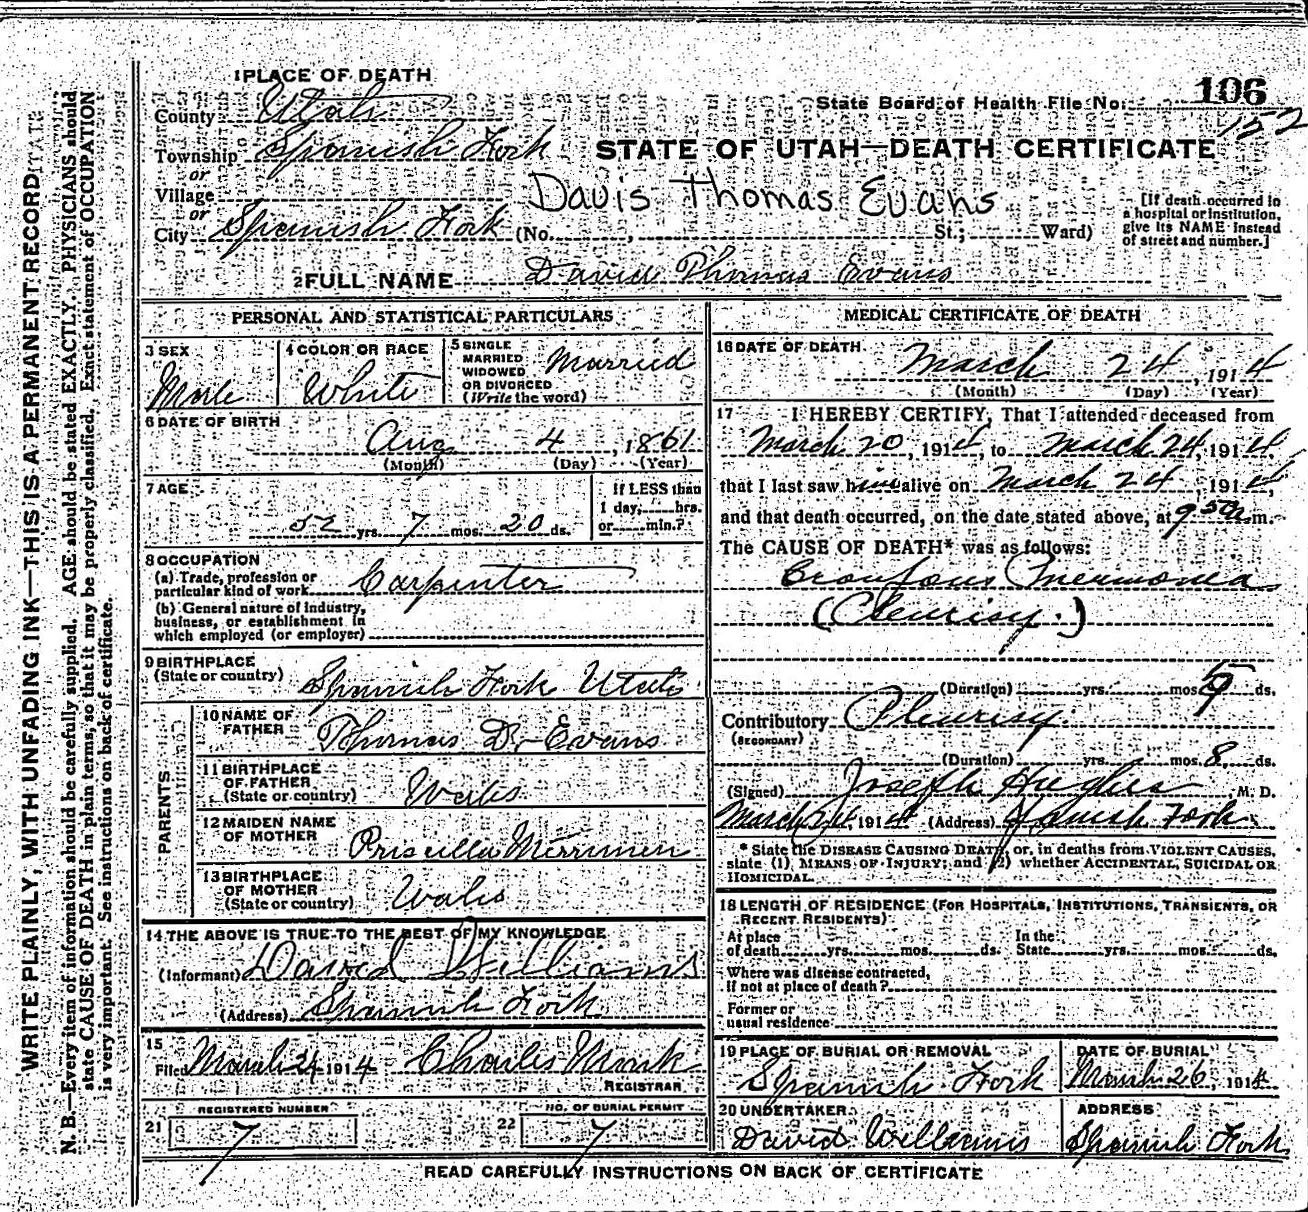 WRITE PLAINLY, WITH UNFADING INK—THIS IS A PERMANENT RECORD
N. B.—Every item of information should be carefully supplied. AGE should be stated EXACTLY. PHYSICIANS should
state CAUSE OF DEATH in plain terms, so that it may be properly classified. Exact statement of OCCUPATION
is very important. See instructions on back of certificate.
1 PLACE OF DEATH
County Utah
Township Spanish Fork
or
Village
or
City Spanish Fork (No. , St.; Ward)
State Board of Health File No. 106
152
STATE OF UTAH—DEATH CERTIFICATE
Davis Thomas Evans
[If death occurred in
a hospital or institution,
give its NAME instead
of street and number.]
2 FULL NAME David Thomas Evans
PERSONAL AND STATISTICAL PARTICULARS
3 SEX
Male
4 COLOR OR RACE
White
5 SINGLE
MARRIED
WIDOWED
OR DIVORCED
(Write the word)
Married
6 DATE OF BIRTH
Aug 4, 1861
(Month) (Day) (Year)
7 AGE
52 yrs. 7 mos. 20 ds.
If LESS than
1 day, hrs.
or min.?
8 OCCUPATION
(a) Trade, profession or
particular kind of work Carpenter
(b) General nature of industry,
business, or establishment in
which employed (or employer)
9 BIRTHPLACE
(State or country) Spanish Fork Utah
PARENTS
10 NAME OF
FATHER Thomas D. Evans
11 BIRTHPLACE
OF FATHER
(State or country) Wales
12 MAIDEN NAME
OF MOTHER Priscilla Merrimen
13 BIRTHPLACE
OF MOTHER
(State or country) Wales
14 THE ABOVE IS TRUE TO THE BEST OF MY KNOWLEDGE
(Informant) David Williams
(Address) Spanish Fork
15
Filed March 24 1914 Charles Monk
REGISTRAR
REGISTERED NUMBER
21 7
NO. OF BURIAL PERMIT
22 7
MEDICAL CERTIFICATE OF DEATH
16 DATE OF DEATH
March 24, 1914
(Month) (Day) (Year)
17 I HEREBY CERTIFY, That I attended deceased from
March 20, 1914, to March 24, 1914,
that I last saw him alive on March 24, 1914,
and that death occurred, on the date stated above, at 9 50 a m.
The CAUSE OF DEATH* was as follows:
Croupous Pneumonia
(Pleurisy.)
(Duration) yrs. mos. ds.
Contributory Pleurisy
(SECONDARY)
(Duration) yrs. mos. 8 ds.
(Signed) Joseph Hughes, M. D.
March 24, 1914 (Address) Spanish Fork
* State the DISEASE CAUSING DEATH, or, in deaths from VIOLENT CAUSES,
state (1) MEANS OF INJURY; and (2) whether ACCIDENTAL, SUICIDAL OR
HOMICIDAL.
18 LENGTH OF RESIDENCE (FOR HOSPITALS, INSTITUTIONS, TRANSIENTS, OR
RECENT RESIDENTS)
At place
of death yrs. mos. ds.
In the
State yrs. mos. ds.
Where was disease contracted,
If not at place of death?
Former or
usual residence
19 PLACE OF BURIAL OR REMOVAL
Spanish Fork
DATE OF BURIAL
March 26, 1914
20 UNDERTAKER
David Williams
ADDRESS
Spanish Fork
READ CAREFULLY INSTRUCTIONS ON BACK OF CERTIFICATE